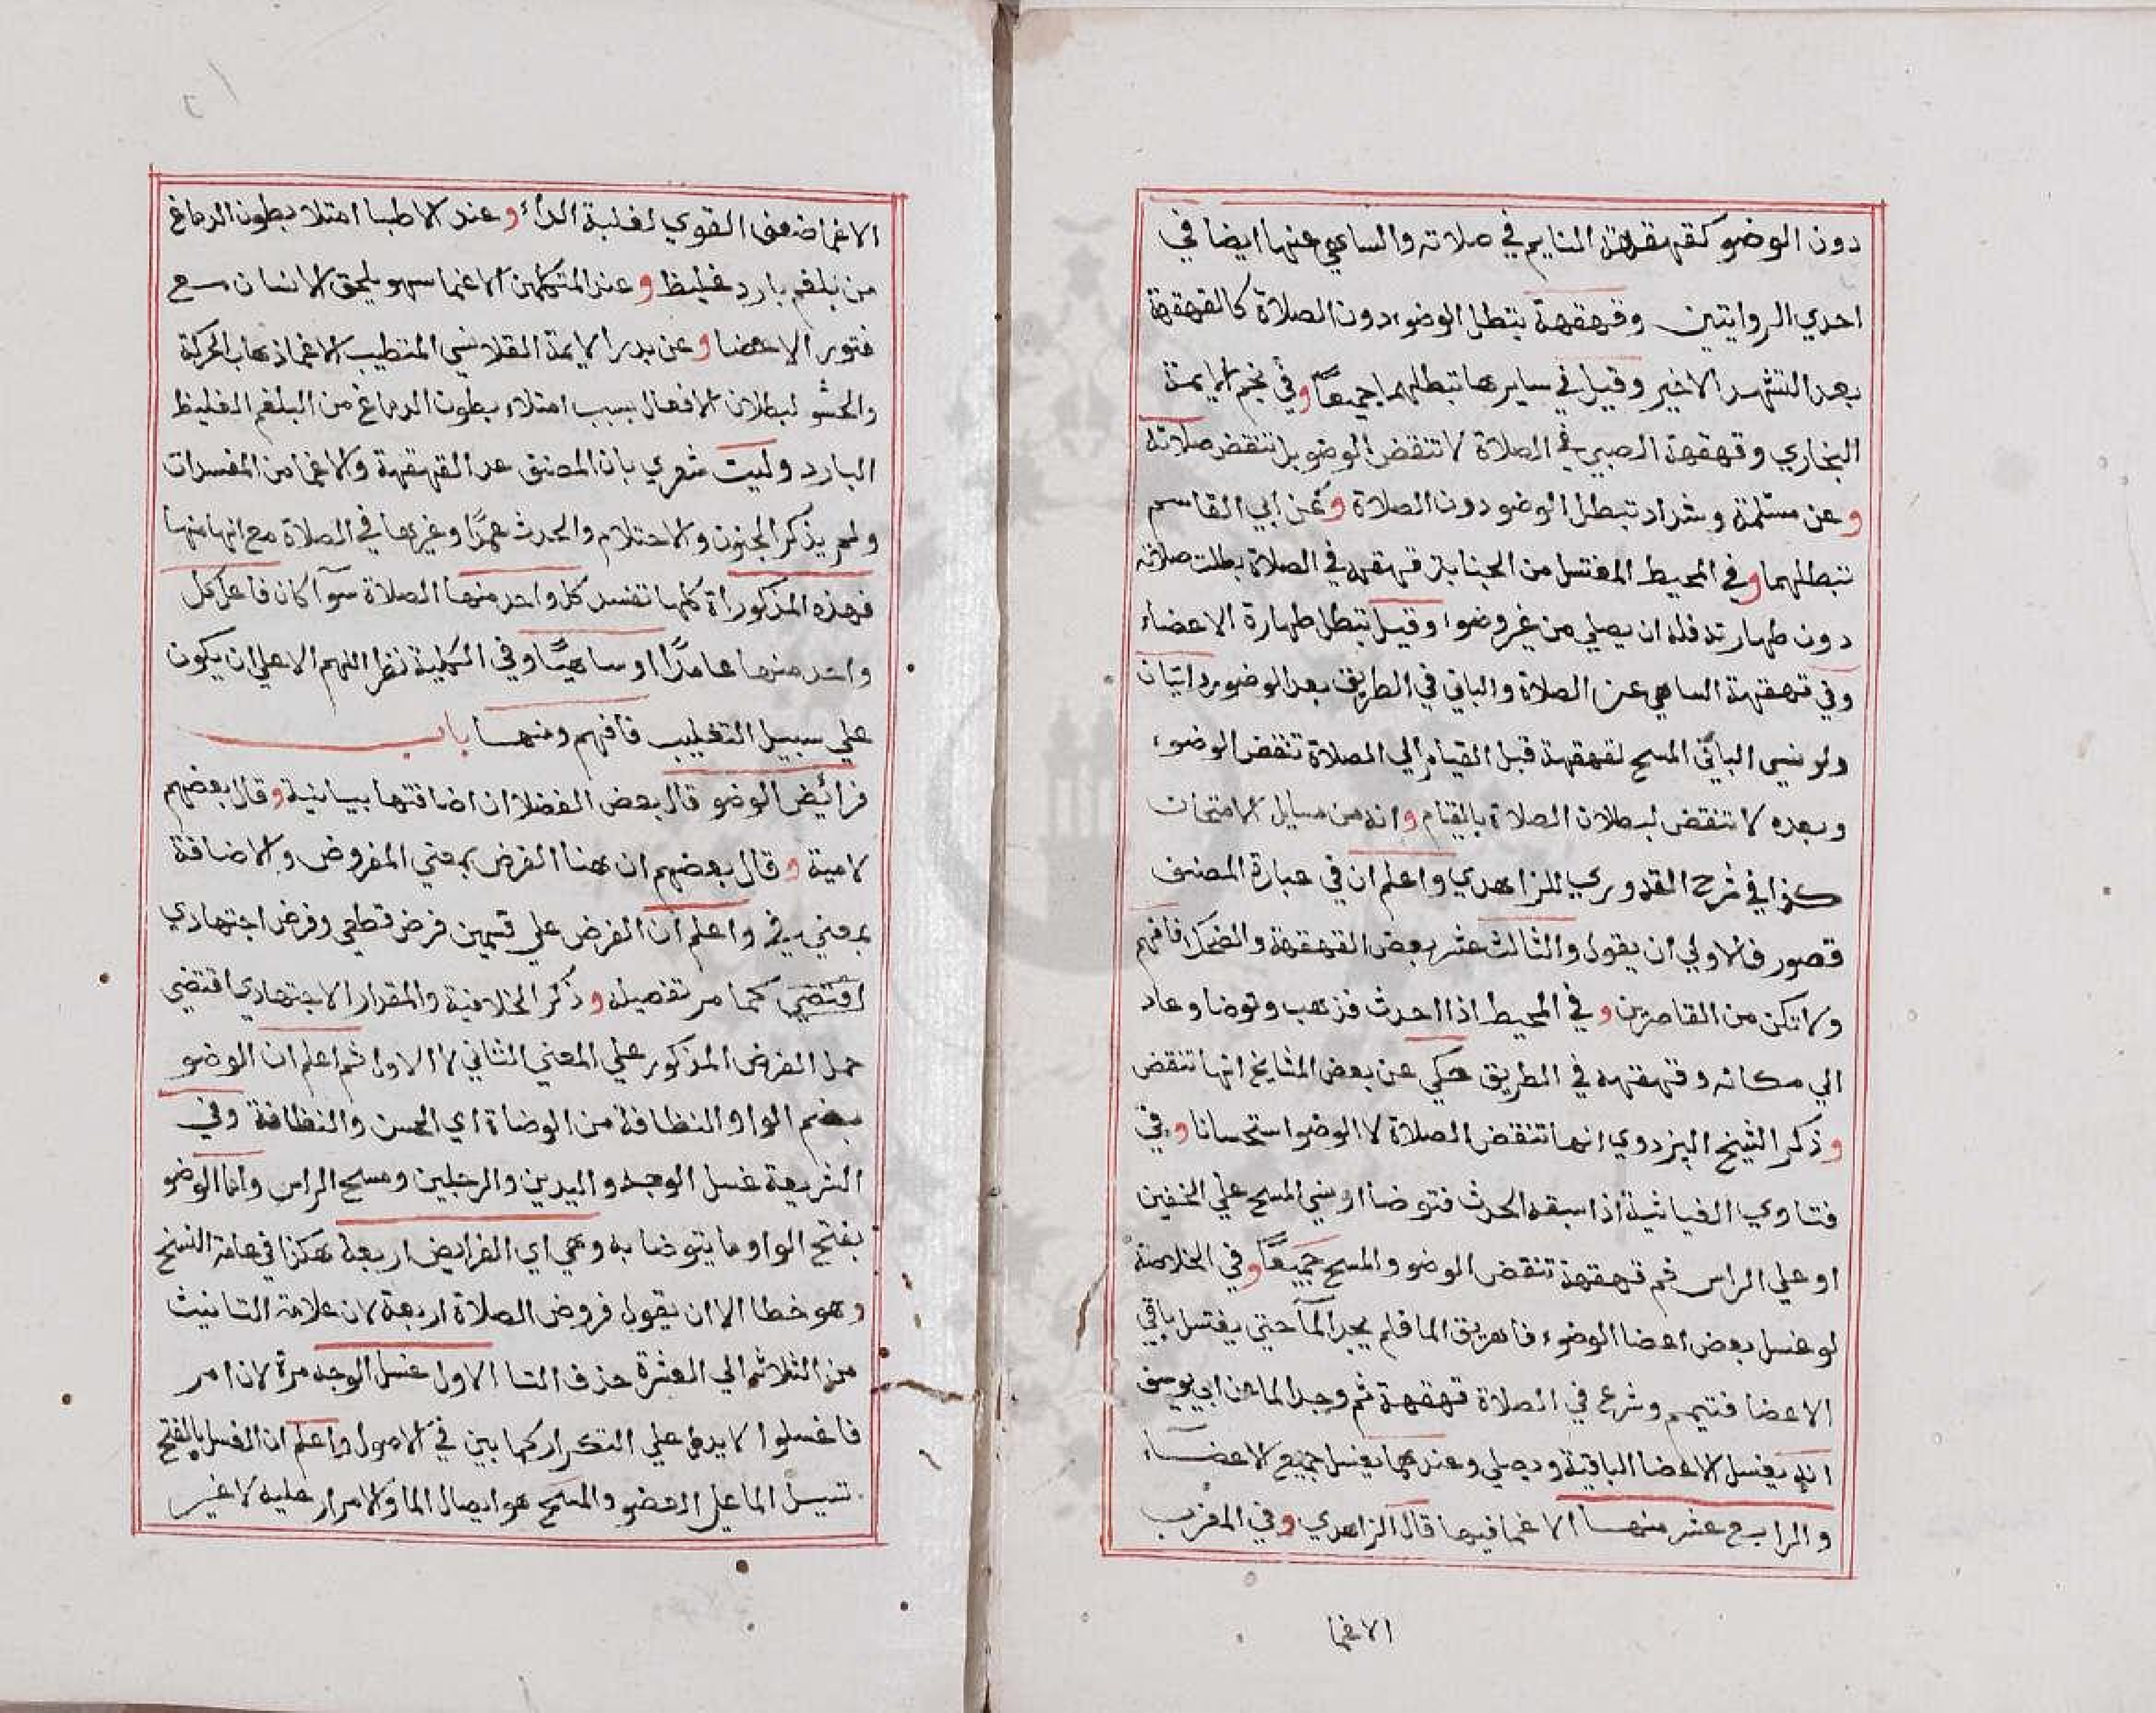 دون الوضو كقهقهة النايم في صلاته والساهي عنها ايضا في
احدي الروايتين وقهقهة تبطل الوضوء دون الصلاة كالقهقهة
بعد التشهد الاخير وقيل في سايرها تبطلهما جميعاً وفي نجم الايمة
البخاري وقهقهة الصبي في الصلاة لا تنقض الوضو بل تنقض صلاته
وعن مسلمة وشداد تبطل الوضو دون الصلاة وعن ابي القاسم
تبطلهما وفي المحيط المغتسل من الجنابة قهقهه في الصلاة بطلت صلاته
دون طهارته فله ان يصلي من غير وضوا وقيل تبطل طهارة الاعضاء
وفي قهقهة الساهي عن الصلاة والباني في الطريق بعد الوضو روايتان
ولو نسي الباني المسح فقهقهة قبل القيام الي الصلاة تنقض الوضوء
وبعده لا تنقض لبطلان الصلاة بالقيام وانه من مسايل الامتحان
كذا في شرح القدوري للزاهدي واعلم ان في عبارة المصنف
قصور فالاولي ان يقول والثالث عشر بعض القهقهة والضحك فافهم
ولا تكن من القاصرين وفي المحيط اذا احدث فذهب وتوضا وعاد
الي مكانه وقهقهه في الطريق حكي عن بعض المشايخ انها تنقض
وذكر الشيخ البزدوي انها تنقض الصلاة لا الوضو استحسانا وفي
فتاوي الغياثية اذا سبقه الحدث فتوضا او نسي المسح علي الخفين
او علي الراس ثم قهقهة تنقض الوضو والمسح جميعاً وفي الخلاصة
لو غسل بعض اعضا الوضوء فاهريق الما فلم يجد المآ حتي يغتسل باقي
الاعضا فتيمم وشرع في الصلاة قهقهة ثم وجد الما عن ابي يوسف
انه يغسل الاعضا الباقية ويصلي وعندهما يغسل جميع الاعضآء
والرابع عشر منها الاغما فيها قال الزاهدي وفي المغرب
الاغما
الاغما ضعف القوي لغلبة الدآء وعند الاطبا امتلا بطون الدماغ
من بلغم بارد غليظ وعند المتكلمين الاغما سهو يلحق الانسان مع
فتور الاعضا وعن بدر الايمة القلانسي المتطيب الاغما ذهاب الحركة
والحس لبطلان الافعال بسبب امتلاء بطون الدماغ من البلغم الغليظ
البارد وليت شعري بان المصنف عد القهقهة والاغما من المفسدات
ولم يذكر الجنون والاحتلام والحدث عمدًا وغيرها في الصلاة مع انها منها
فهذه المذكوراة كلها تفسد كل واحد منها الصلاة سوآ كان فاعل كل
واحد منها عامدًا او ساهيًا وفي الكلية نظر اللهم الا علي ان يكون
علي سبيل التغليب فافهم ومنها باب
فرائيض الوضو قال بعض الفضلا ان اضافتها بيانية وقال بعضهم
لامية وقال بعضهم ان هنا الفرض بمعني المفروض والاضافة
بمعني في واعلم ان الفرض علي قسمين فرض قطعي وفرض اجتهادي
اقتضي كما مر تفصيله وذكر الخلافية والمقدار الاجتهادي اقتضي
حمل الفرض المذكور علي المعني الثاني لا الاول ثم اعلم ان الوضو
بضم الواو النظافة من الوضاة اي الحسن والنظافة وفي
الشريعة غسل الوجه واليدين والرجلين ومسح الراس واما الوضو
بفتح الواو ما يتوضا به وهي اي الفرايض اربعة هكذا في عامة النسخ
وهو خطا الا ان يقول فروض الصلاة اربعة لان علامة التانيث
من الثلاثه الي العشرة حذف التا الاول غسل الوجه مرة لان امر
فاغسلوا لا يدل علي التكرار كما بين في الاصول واعلم ان الغسل بالفتح
تسيل الما علي العضو والمسح هو ايصال الما والامرار عليه لا غير